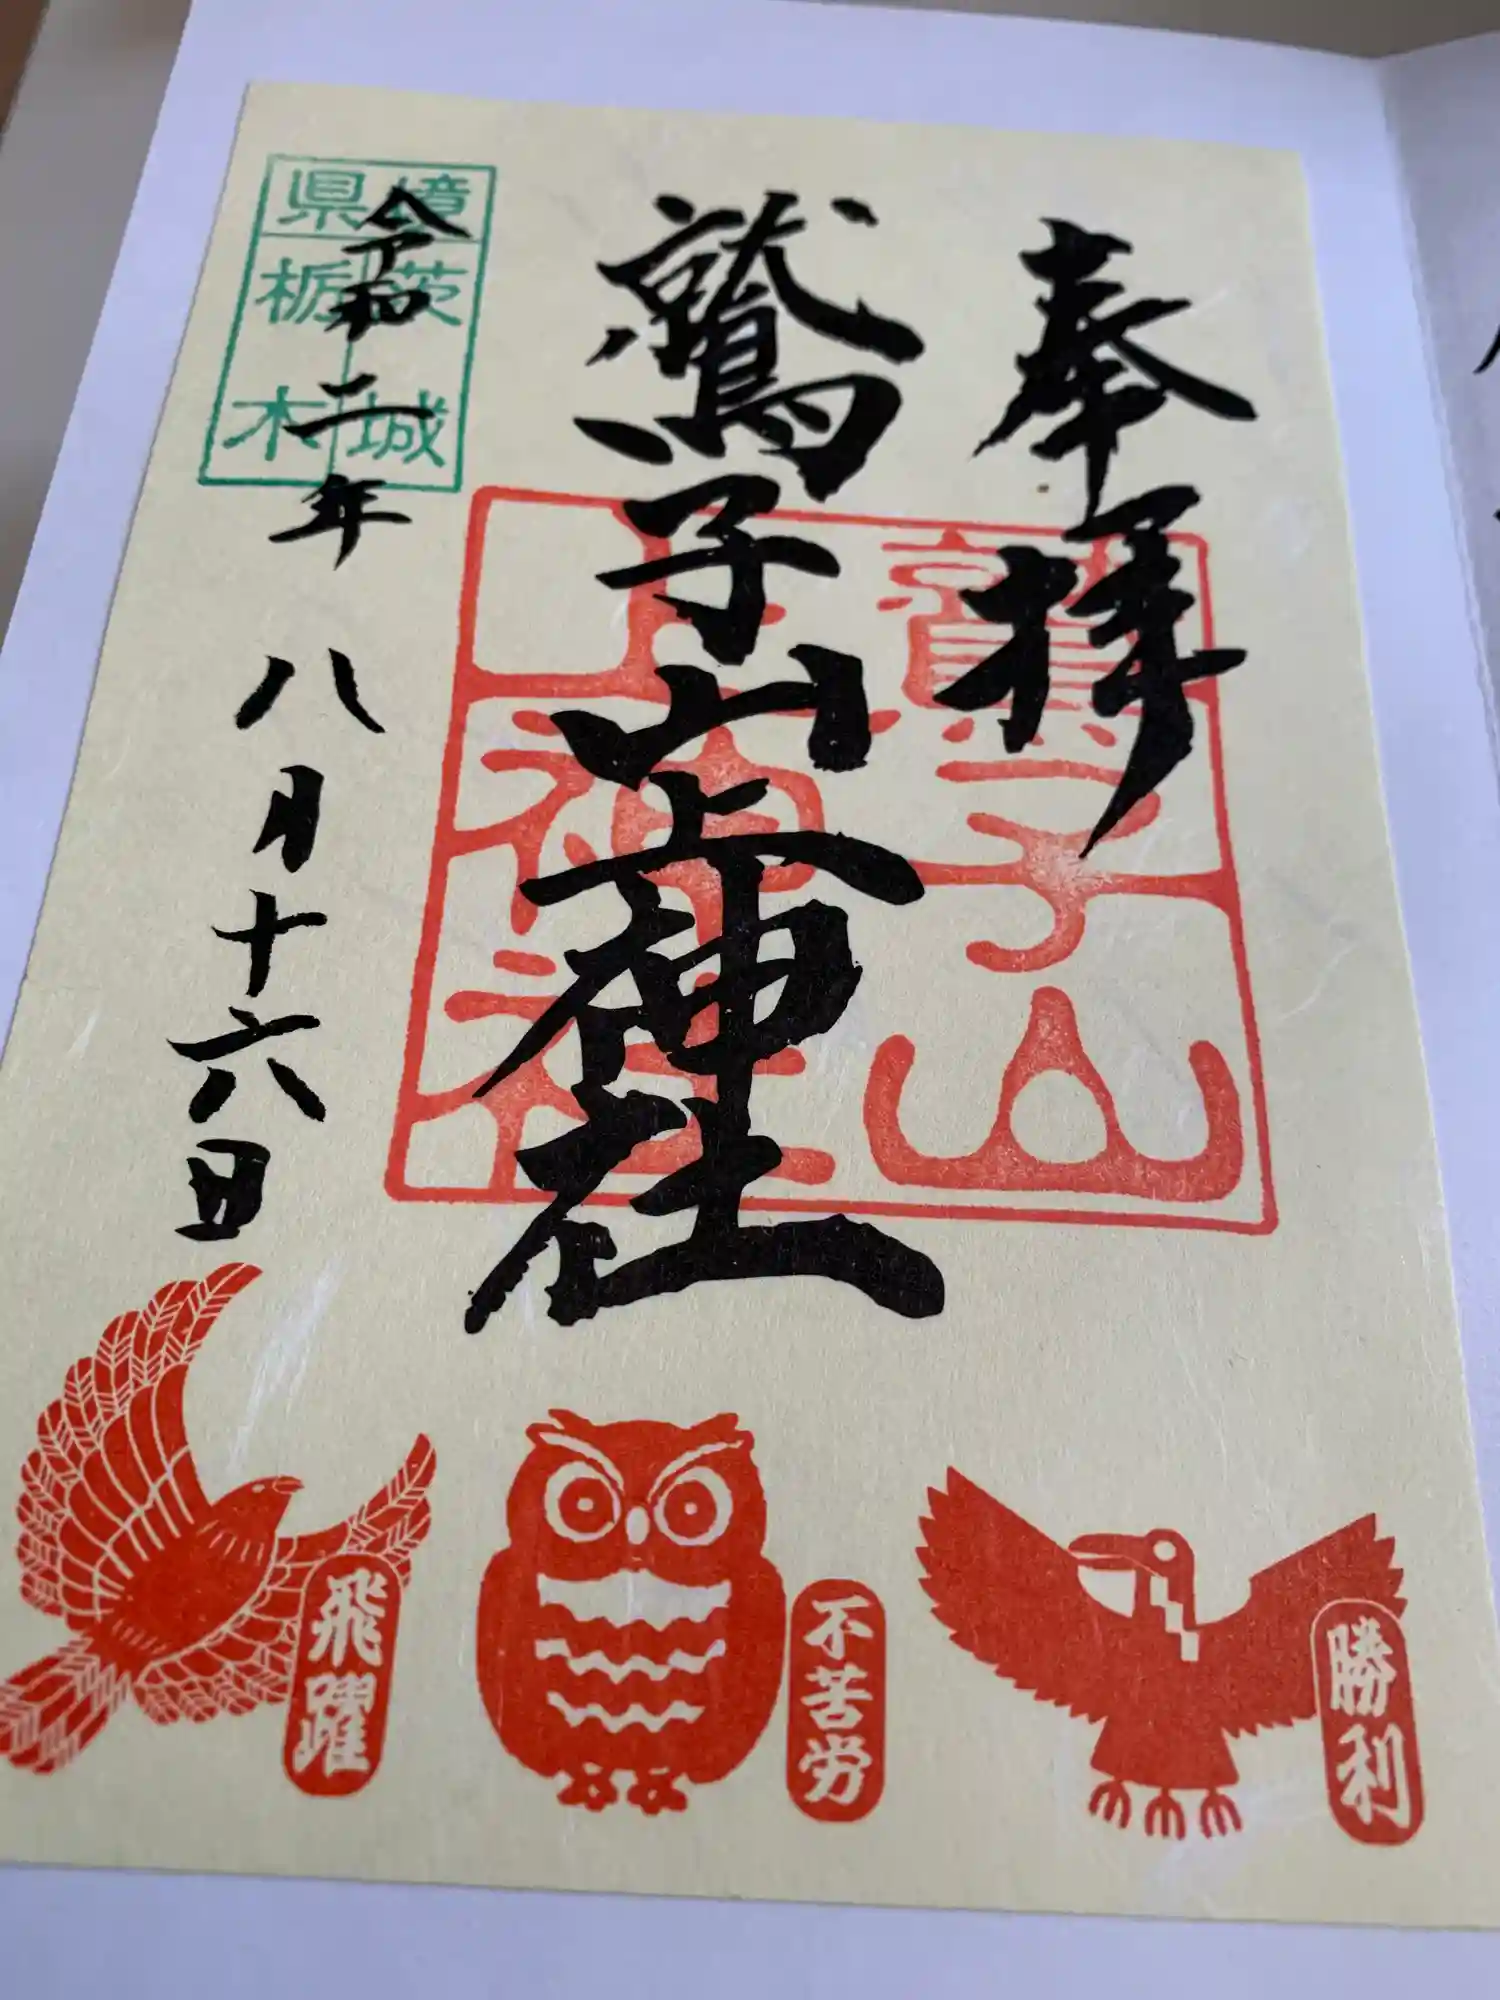 奉拝
鷲子山上神社
鷲子山
上神社
県境
茨城
栃木
令和二年八月十六日
勝利
不苦労
飛躍